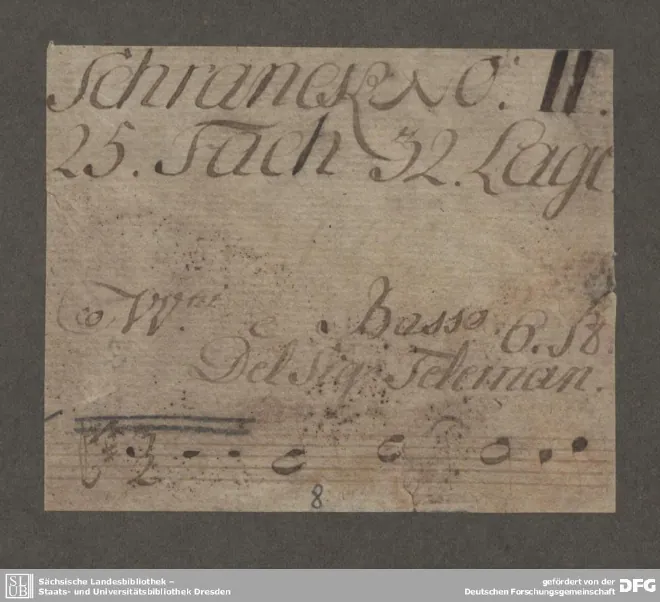 Schranck No: II.
25. Fach 32. Lage
Co VV.ni e Basso. 6. St
Del Sigr Teleman.
3/2
8
SLUB
Sächsische Landesbibliothek –
Staats- und Universitätsbibliothek Dresden
gefördert von der
Deutschen Forschungsgemeinschaft
DFG